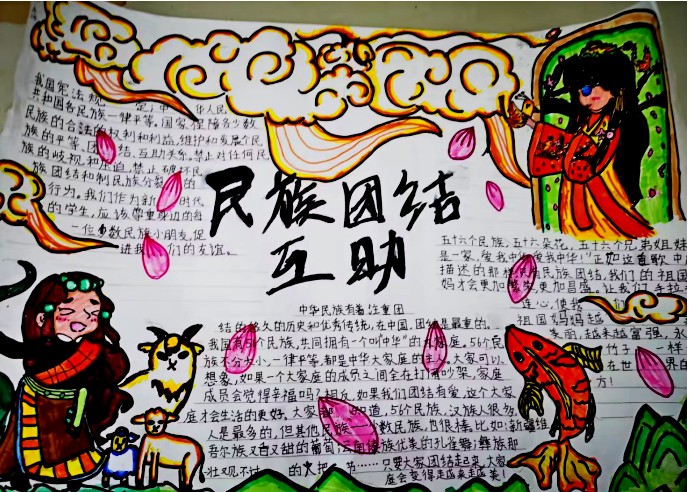 我国宪法规定,中华人民
共和国各民族一律平等。国家保障各少数
民族的合法的权利和利益,维护和发展各民
族的平等、团结、互助关系。禁止对任何民
族的歧视和压迫,禁止破坏民
族团结和制民族分裂的
行为。我们作为新时代
的学生,应该尊重身边的每
一位少数民族小朋友,促
进我们的友谊。
民族团结
互助
五十六个民族,五十六朵花,五十六个兄弟姐妹
是一家,爱我中华爱我中华!"正如这首歌中
描述的那样民族团结,我们的祖国
妈才会更加繁荣,更加昌盛。让我们手拉
连心,使我
祖国妈妈越
美丽,越来越富强,永
竹子一样
在世界的
方!
中华民族有着注重团
结的悠久的历史和优秀传统,在中国,团结是最重的。
我国有56个民族,共同拥有一个叫"中华"的大家庭。56个民
族不分大小,一律平等,都是中华大家庭的主人。大家可以
想象,如果一个大家庭的成员之间全在打闹吵架,家庭
成员会觉得幸福吗?相反,如果我们团结有爱,这个大家
庭才会生活的更好。大家都知道,56个民族,汉族人很多,
人是最多的,但其他民族少数民族,也很棒,比如:新疆维
吾尔族又白又甜的葡萄;云南傣族优美的孔雀舞;彝族那
壮观不过的火把节……只要大家团结起来,大家
庭会变得越来越美